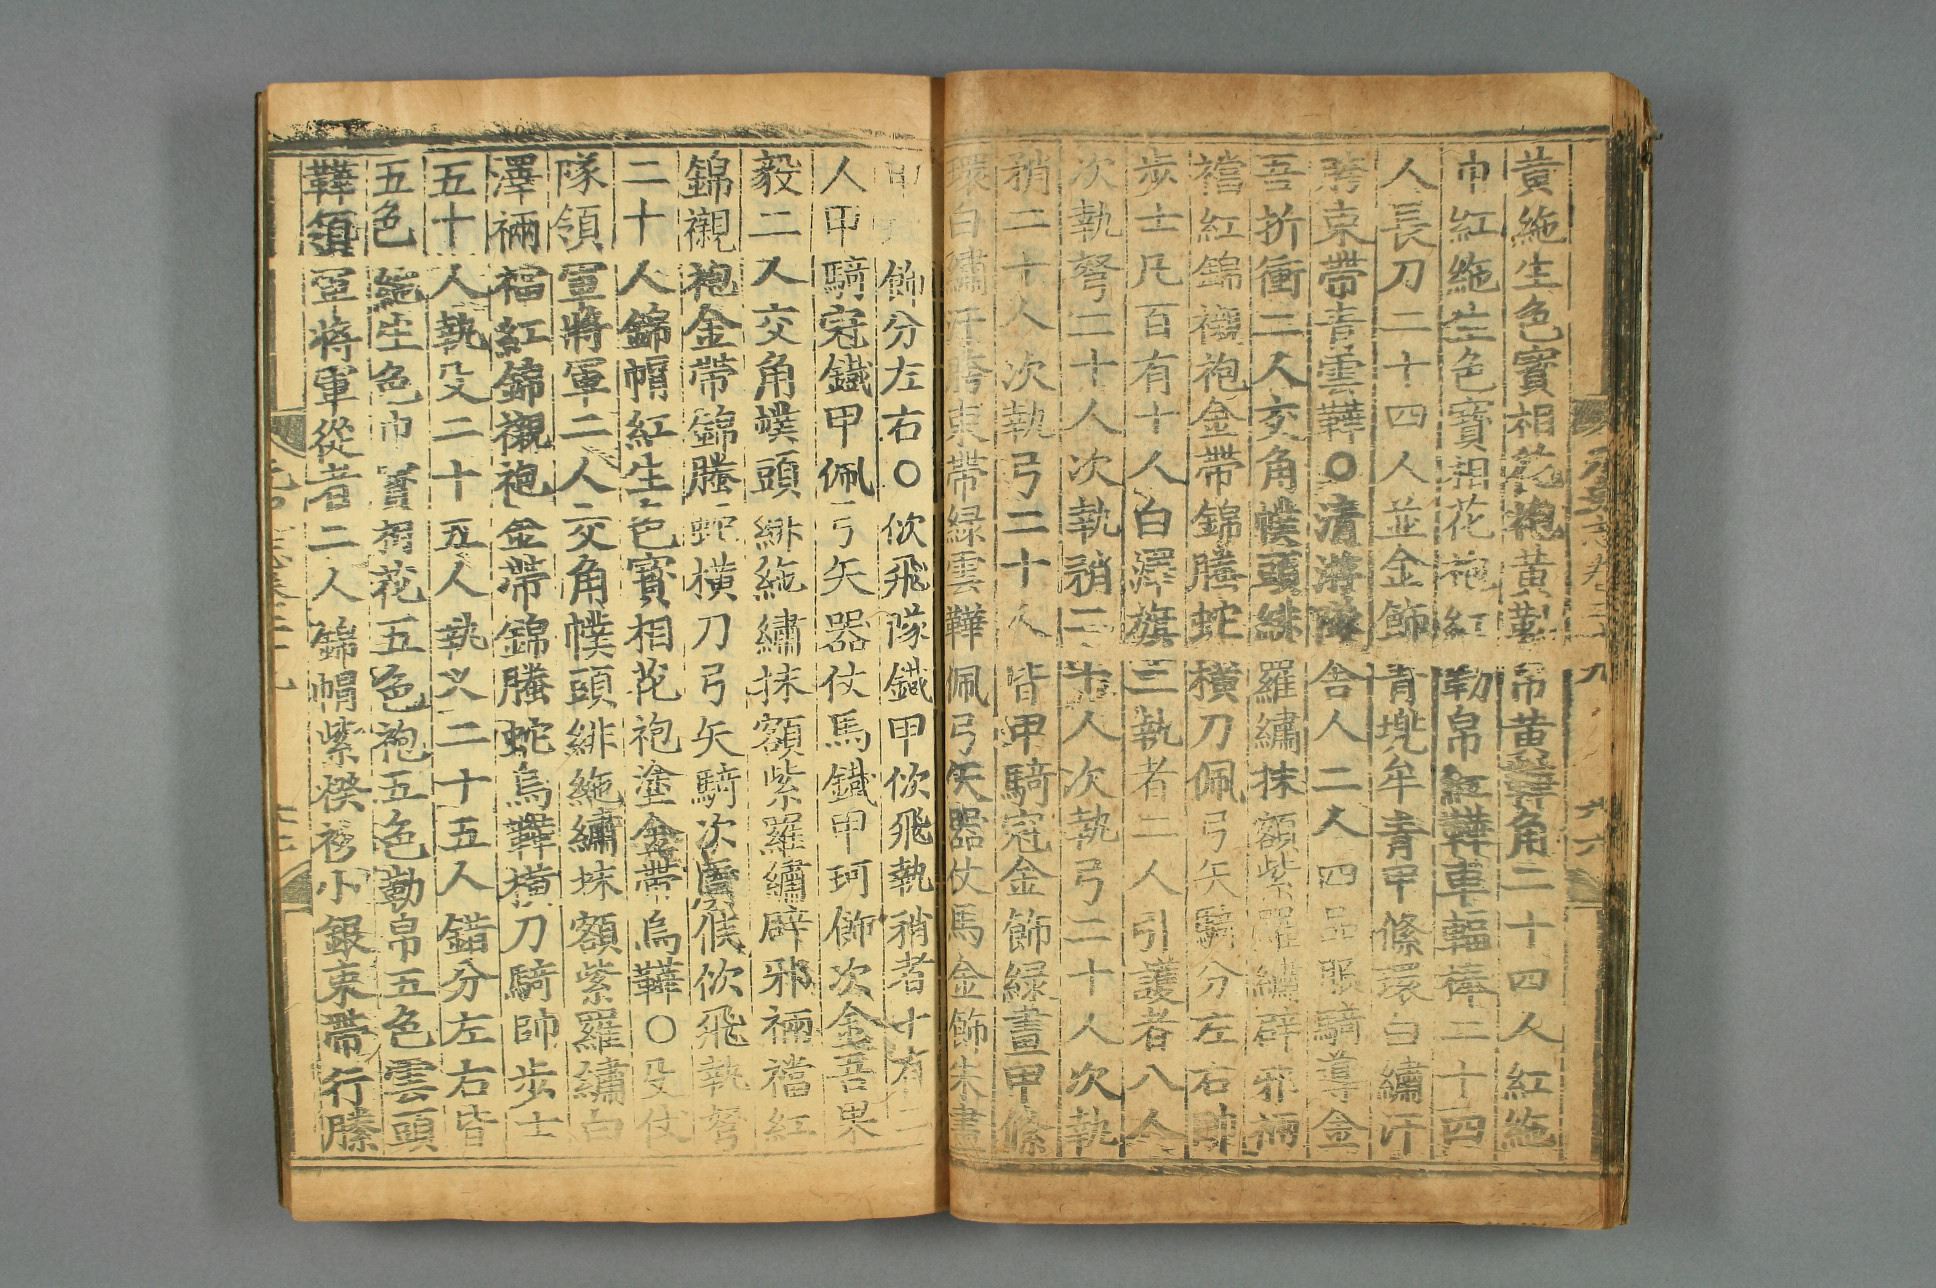 黃絁生色寶相花袍黃勒帛黃鞾角二十四人紅絁
巾紅絁生色寶相花袍紅勒帛紅鞾車輻棒二十四
人長刀二十四人並金飾青兠牟青甲絛環白繡汗
胯束帶青雲鞾○清游隊舍人二人四品服騎導金
吾折衝二人交角幞頭緋羅繡抹額紫羅繡辟邪裲
襠紅錦襯袍金帶錦螣蛇橫刀佩弓矢騎分左右帥
步士凡百有十人白澤旗二執者二人引護者八人
次執弩二十人次執矟二十人次執弓二十人次執
矟二十人次執弓二十人皆甲騎冠金飾綠畫甲絛
環白繡汗胯束帶綠雲鞾佩弓矢器仗馬金飾朱畫
甲 飾分左右○佽飛隊鐵甲佽飛執矟者十有二
人甲騎冠鐵甲佩弓矢器仗馬鐵甲珂飾次金吾果
毅二人交角幞頭緋絁繡抹額紫羅繡辟邪裲襠紅
錦襯袍金帶錦螣蛇橫刀弓矢騎次虞候佽飛執弩
二十人錦帽紅生色寶相花袍塗金帶烏鞾○殳仗
隊領軍將軍二人交角幞頭緋絁繡抹額紫羅繡白
澤裲襠紅錦襯袍金帶錦螣蛇烏鞾橫刀騎帥步士
五十人執殳二十五人執义二十五人錯分左右皆
五色絁生色巾寶相花五色袍五色勒帛五色雲頭
鞾領軍將軍從者二人錦帽紫㮣衫小銀束帶行縢